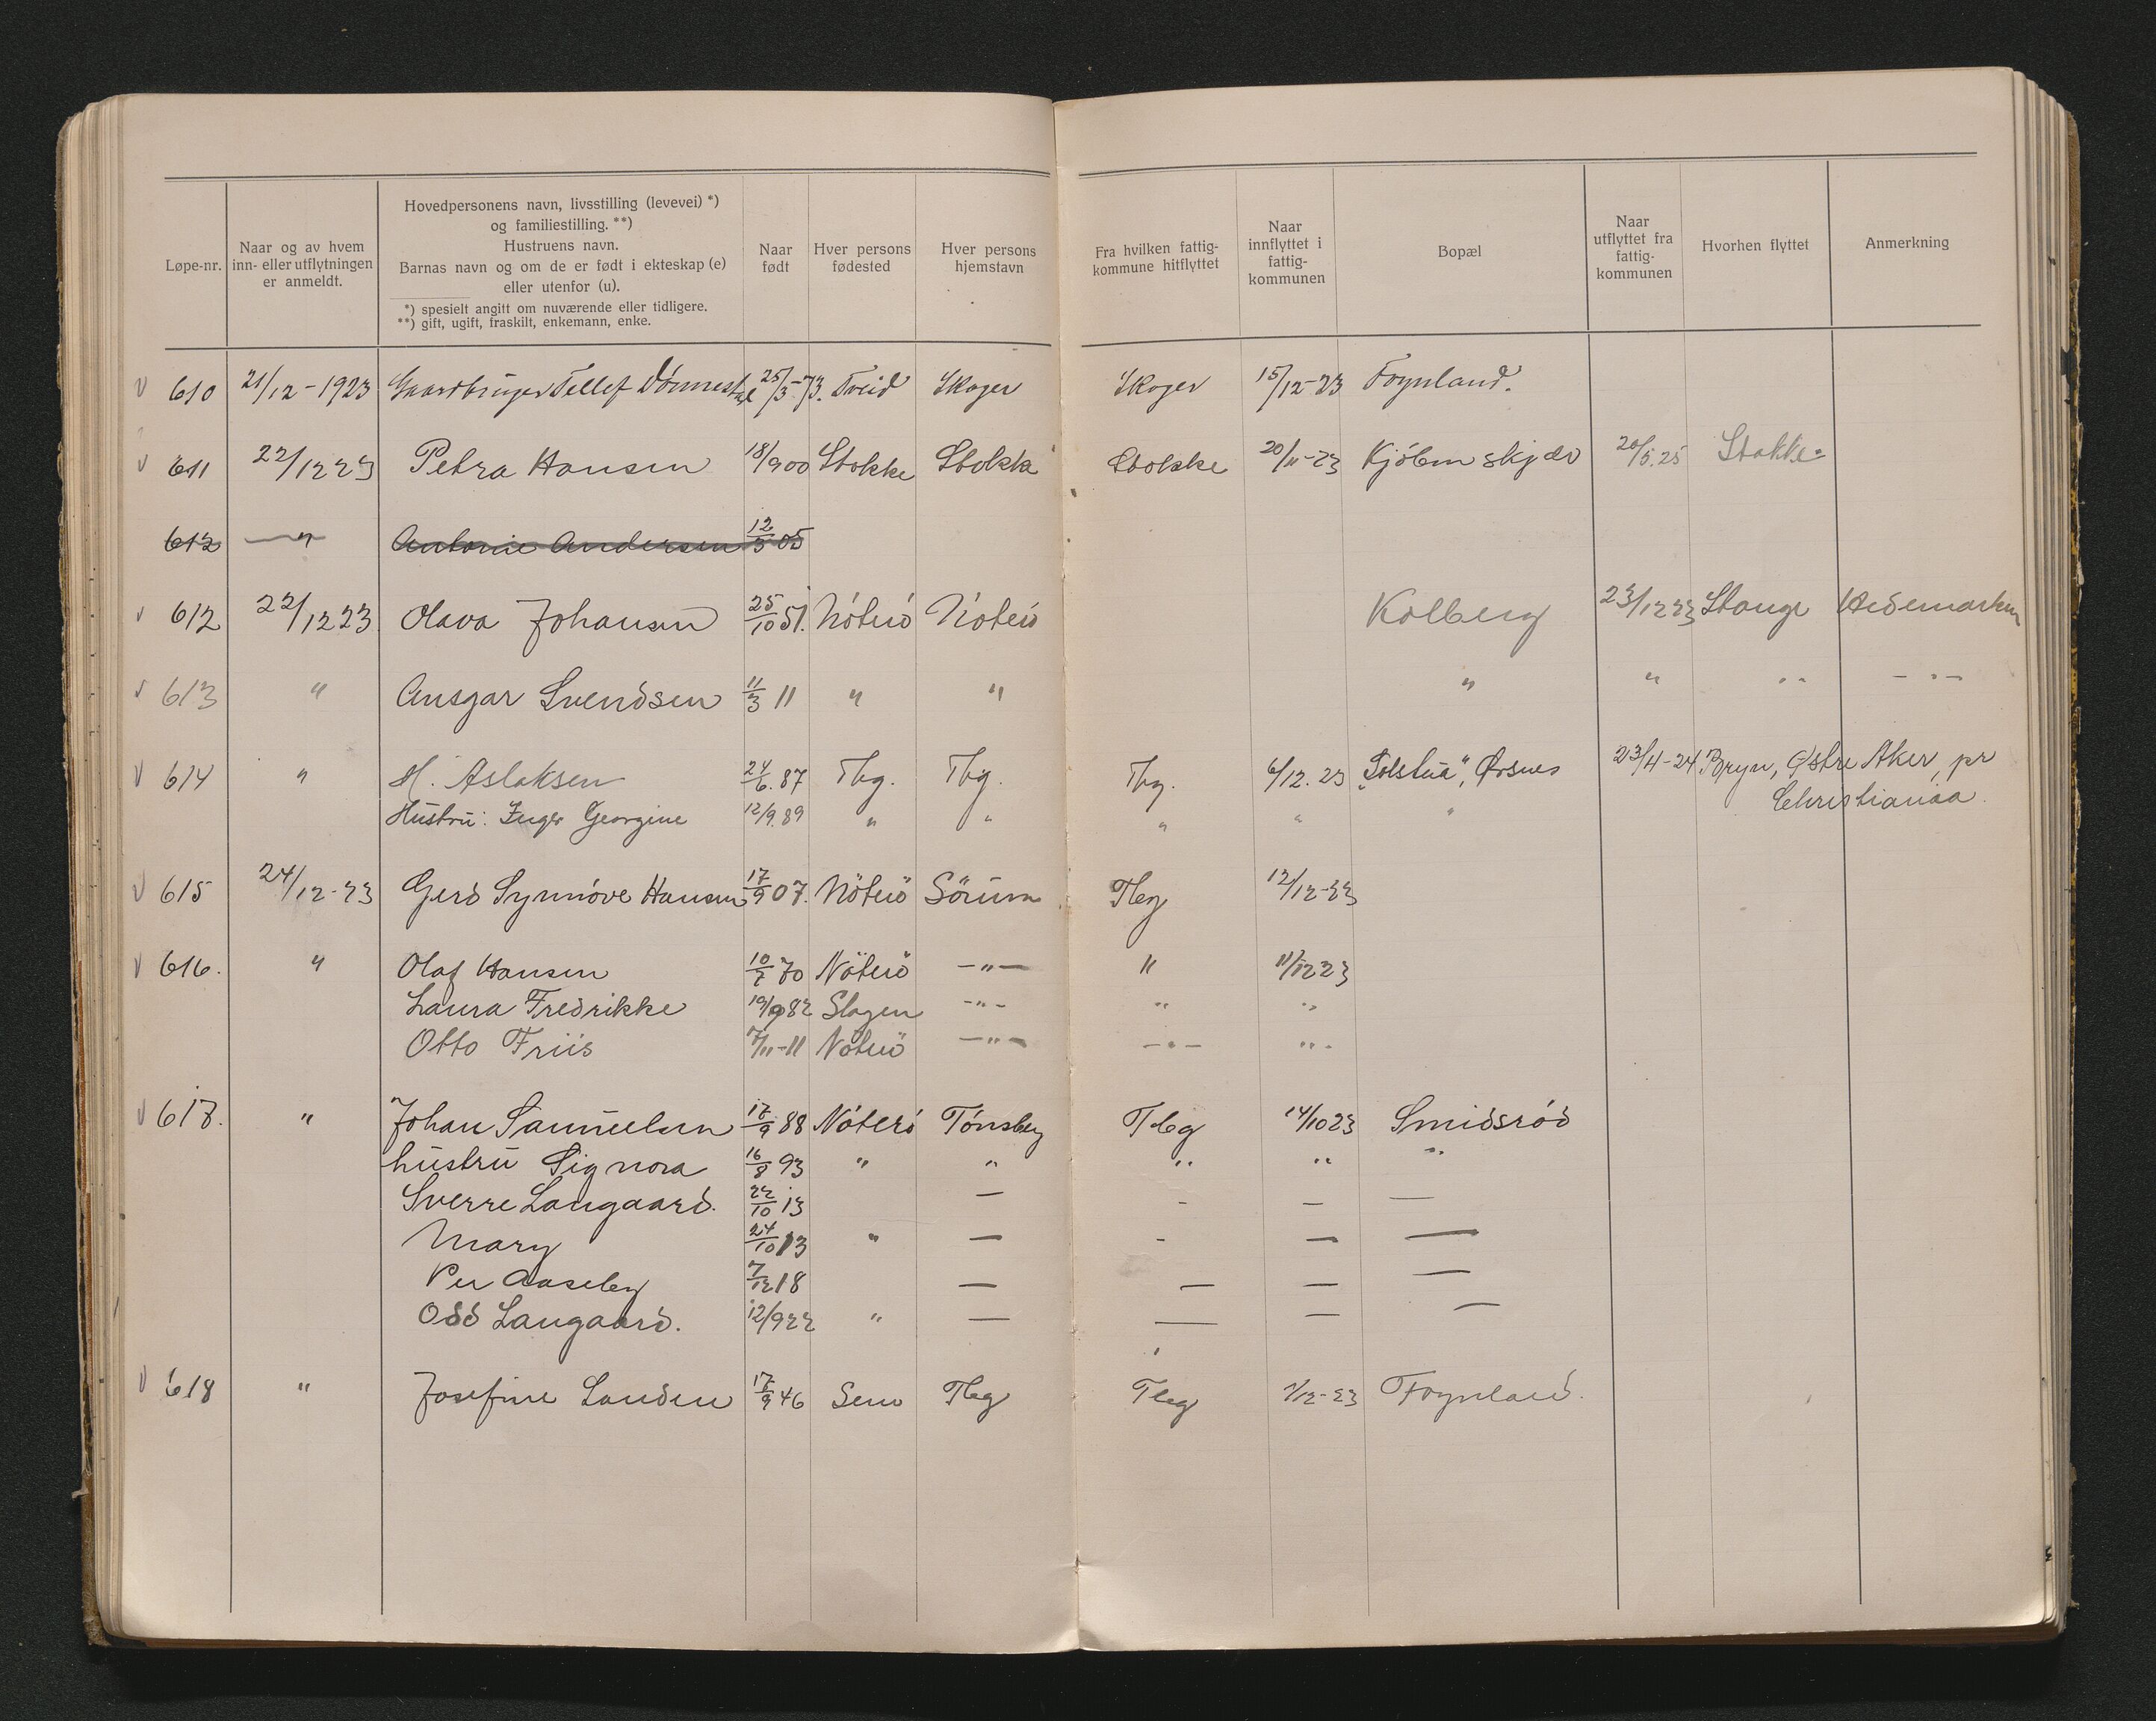 Løpe-nr. | Naar og av hvem inn- eller utflytningen er anmeldt. | Hovedpersonens navn, livsstilling (levevei) *) og familiestilling. **) Hustruens navn. Barnas navn og om de er født i ekteskap (e) eller utenfor (u). *) spesielt angitt om nuværende eller tidligere. **) gift, ugift, fraskilt, enkemann, enke. | Naar født | Hver persons fødested | Hver persons hjemstavn | Fra hvilken fattig-kommune hitflyttet | Naar innflyttet i fattig-kommunen | Bopæl | Naar utflyttet fra fattig-kommunen | Hvorhen flyttet | Anmerkning
610 21/12-1923 Gaardbruger Tellef 25/3-73. Tveid Skoger Skoger 15/12-23 Foynland.
611 22/12 23 Petra Hansen 18/9 00 Stokke Stokke Stokke 20/11-23 Kjöbmskjær 20/5.25 Stokke
612 " Antonie Andersen 12/3 05
612 22/12 23 Olava Johansen 25/10 51. Nöterö Nöterö Kolberg 23/12 23 Stange Hedemarken
613 " Ansgar Svendsen 11/3 11 " " " " " - " -
614 " M. Aslaksen 24/6. 87 Tbg. Tbg. Tbg. 6/12. 23 "Solstua", Ørsnes 23/4-24 Bryn, Østre Aker, pr
Hustru: Inger Georgine 12/9. 89 " " " " " Christiania.
615 24/12-23 Gerd Synnöve Hansen 17/9 07. Nöterö Sörum Tbg 12/12-23
616. " Olaf Hansen 10/7 70 Nöterö -"- " 11/12 23
Laura Fredrikke 19/9 82 Slagen -"- " "
Otto Friis 7/11-11 Nöterö -"- -"- "
617. " Johan Samuelsen 17/9 88 Nöterö Tönsberg Tbg 14/10 23 Smidsröd
hustru Signora 16/8 93 " " " " "
Sverre Langaard. 22/10 13 — - — —
Mary 24/10 13 " — - — —
Per Aaseby 7/12 18 — — — —
Odd Langaard. 12/9 22 " — — — —
618 " Josefine Landen 17/9 46 Sem Tbg Tbg 1/12-23 Foynland.